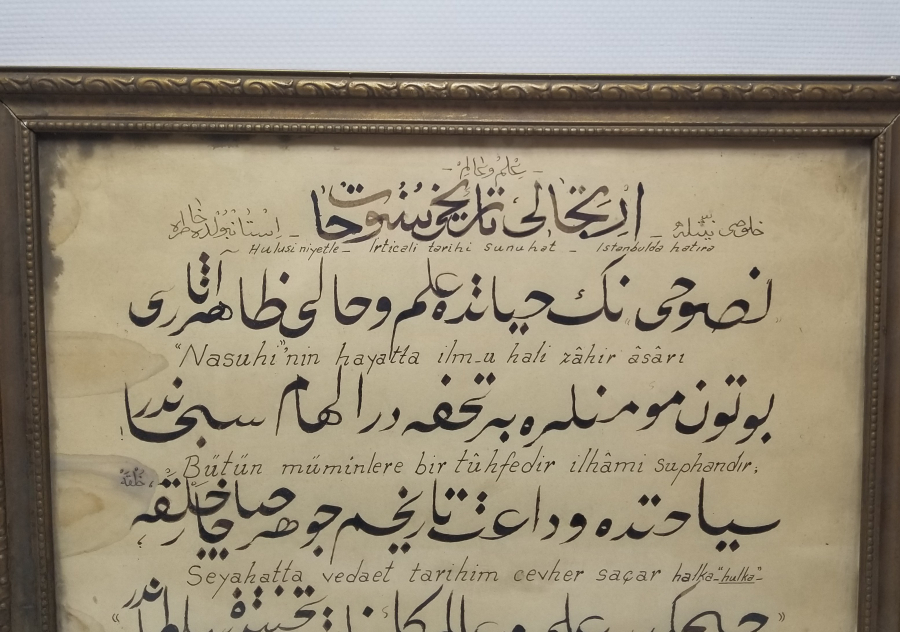 - علم و عالم -
خلوصی نیتله - ارتجالی تاریخ سنوحات - استانبولده خاطره
Hulusi niyetle - İrticali tarihi sunuhat - İstanbulda hatıra
نصوحی نك حیاتده علم و حالی ظاهر اثاری
"Nasuhi"nin hayatta ilm-u hali zâhir âsârı
بوتون مومنلره بر تحفه در الهام سبحاندر
Bütün müminlere bir tûhfedir ilhâmi suphandır;
سیاحتده وداعت تاریخم جوهر صاچار خلقه
Seyahatta vedaet tarihim cevher saçar halka-"hulka"-